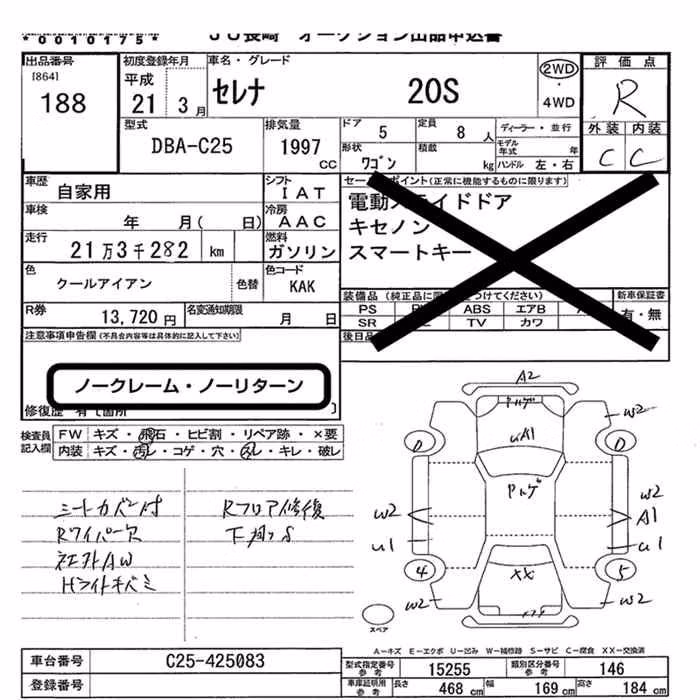 *0010175* JU長崎 オークション出品申込書
出品番号 [864] 188
初度登録年月 平成 21年 3月
車名・グレード セレナ 20S
2WD ・ 4WD
評価点 R
外装 内装 C C
型式 DBA-C25
排気量 1997 CC
ドア 5 定員 8人 ディーラー・並行
形状 ワゴン 積載 kg モデル年式 年 ハンドル 左・右
車歴 自家用
シフト IAT
車検 年 月( 日)
冷房 AAC
走行 21万3千282 km
燃料 ガソリン
色 クールアイアン 色替
色コード KAK
R券 13,720円 名変通知期限 月 日
セールスポイント(正常に機能するものに限ります)
電動スライドドア
キセノン
スマートキー
装備品 (純正品に つけてください) 新車保証書
PS ABS エアB 有・無
SR TV カワ
後日品
注意事項申告欄 (不具合内容等は具体的に記入して下さい)
ノークレーム・ノーリターン
修復歴 有て箇所
検査員記入欄 FW キズ・飛石・ヒビ割・リペア跡・×要
内装 キズ・汚レ・コゲ・穴・スレ・キレ・破レ
シートカバー付 Rフロア修復
Rワイパー欠 下廻りS
社外AW
Hライトキズミ
A2
W2
uA1
W2 W2
A1
u1 u1
4 5
XX
W2 W2
スペア
A―キズ E―エクボ U―凹み W―補修跡 S―サビ C―腐食 XX―交換済
車台番号 C25-425083
登録番号
型式指定番号 参考 15255 類別区分番号 参考 146
車庫証明用 参考 長さ 468 cm 幅 169 cm 高さ 184 cm